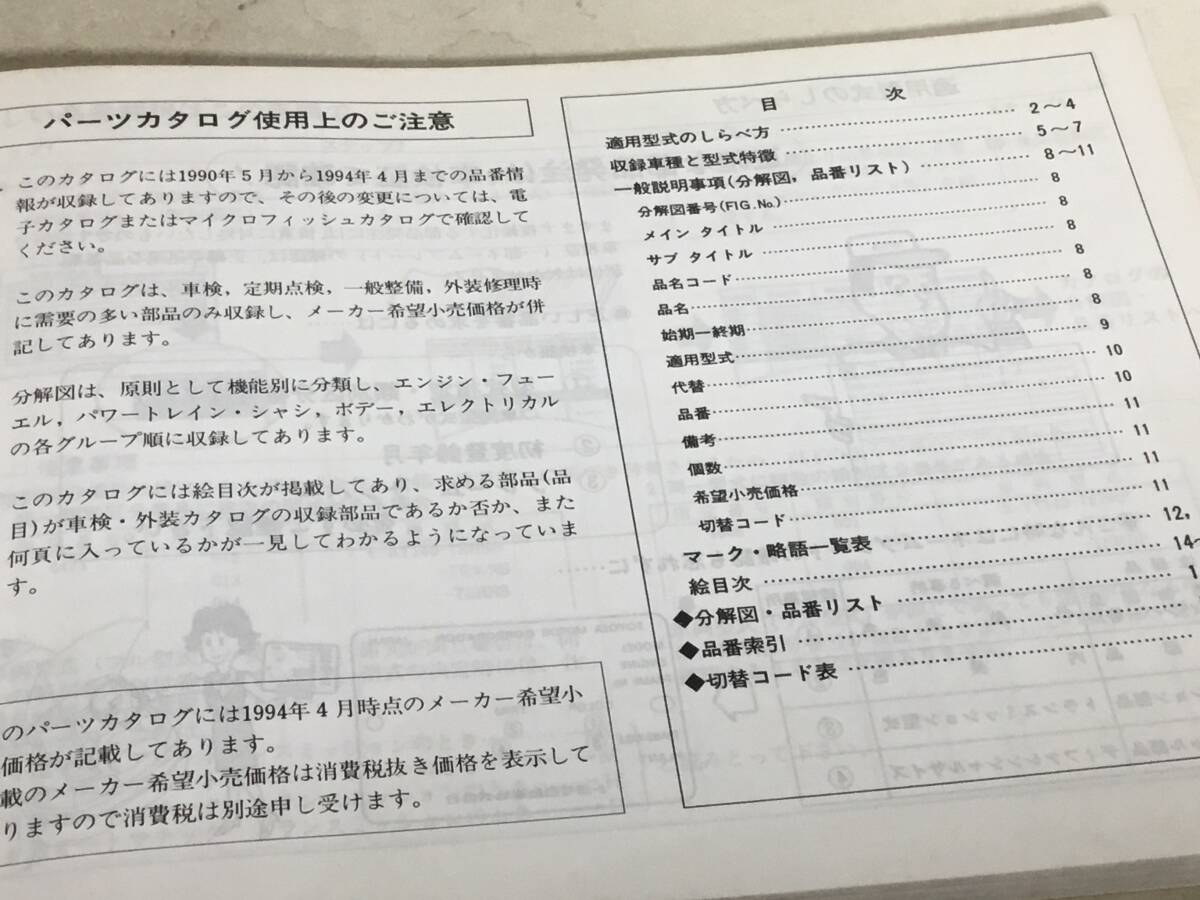 パーツカタログ使用上のご注意
このカタログには1990年5月から1994年4月までの品番情
報が収録してありますので、その後の変更については、電
子カタログまたはマイクロフィッシュカタログで確認して
ください。
このカタログは、車検，定期点検，一般整備，外装修理時
に需要の多い部品のみ収録し、メーカー希望小売価格が併
記してあります。
分解図は、原則として機能別に分類し、エンジン・フュー
エル，パワートレイン・シャシ，ボデー，エレクトリカル
の各グループ順に収録してあります。
このカタログには絵目次が掲載してあり、求める部品(品
目)が車検・外装カタログの収録部品であるか否か、また
何頁に入っているかが一見してわかるようになっていま
す。
のパーツカタログには1994年4月時点のメーカー希望小
価格が記載してあります。
載のメーカー希望小売価格は消費税抜き価格を表示して
りますので消費税は別途申し受けます。
目 次
適用型式のしらべ方 …… 2～4
収録車種と型式特徴 …… 5～7
一般説明事項(分解図，品番リスト) …… 8～11
分解図番号(FIG.No) …… 8
メイン タイトル …… 8
サブ タイトル …… 8
品名コード …… 8
品名 …… 8
始期ー終期 …… 8
適用型式 …… 9
代替 …… 10
品番 …… 10
備考 …… 11
個数 …… 11
希望小売価格 …… 11
切替コード …… 11
マーク・略語一覧表 …… 12，
絵目次 …… 14～
◆分解図・品番リスト …… 1
◆品番索引 ……
◆切替コード表 ……